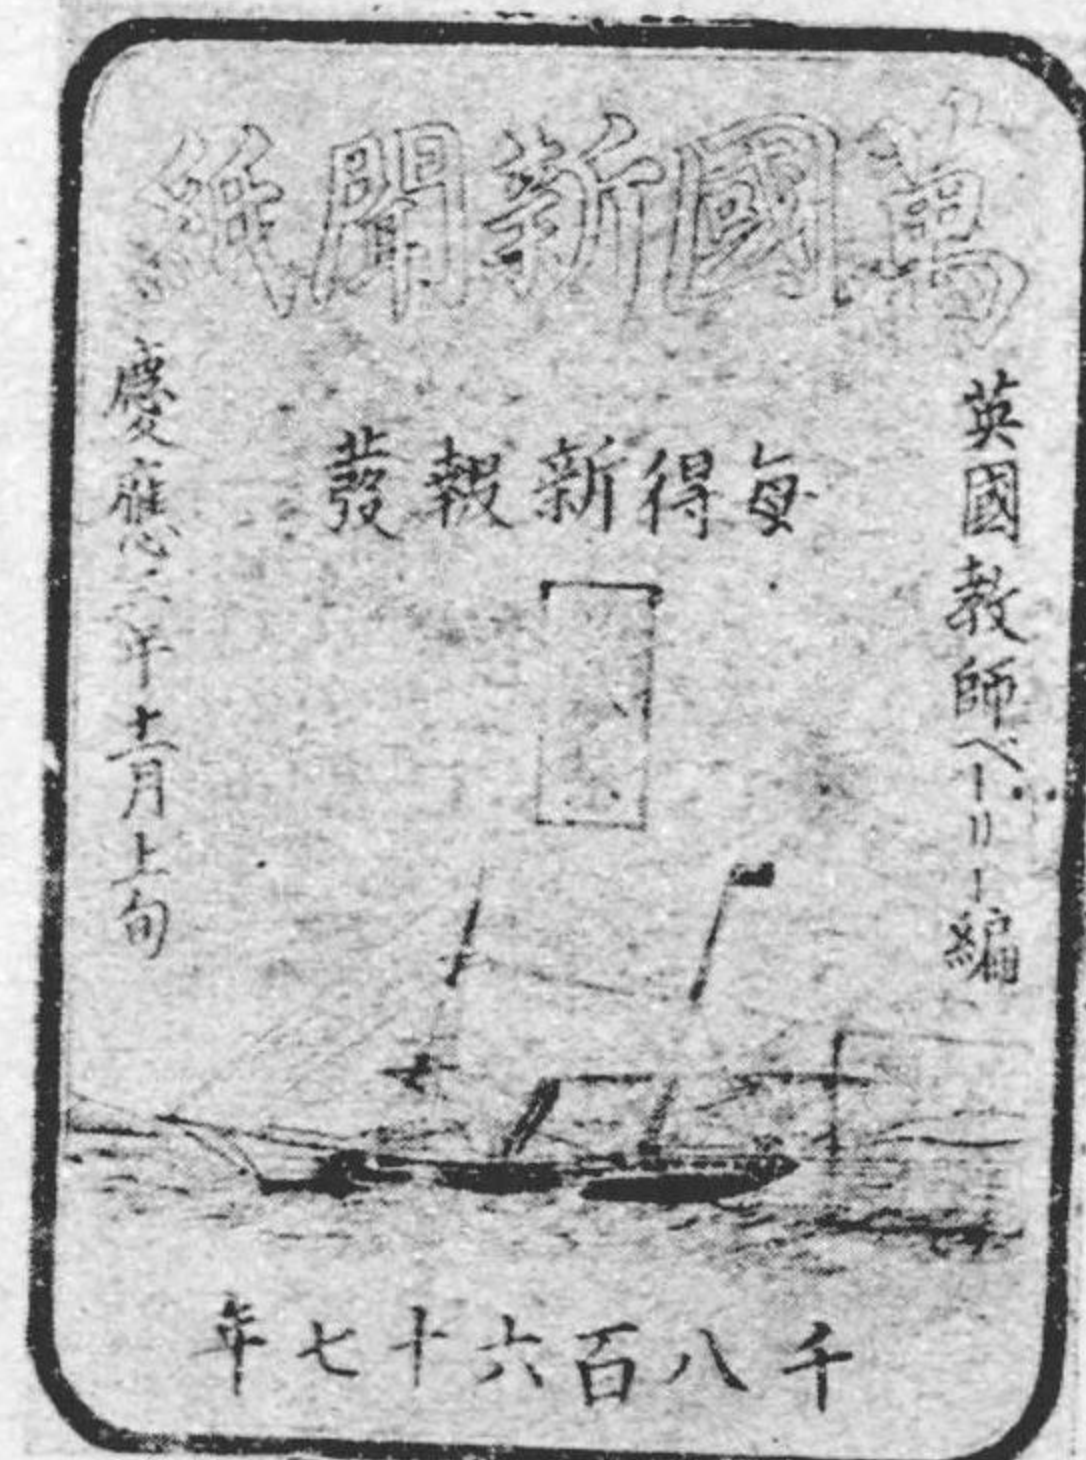 萬國新聞紙
英國教師ベーリー編
毎得新報發
慶應三年十二月上旬
千八百六十七年